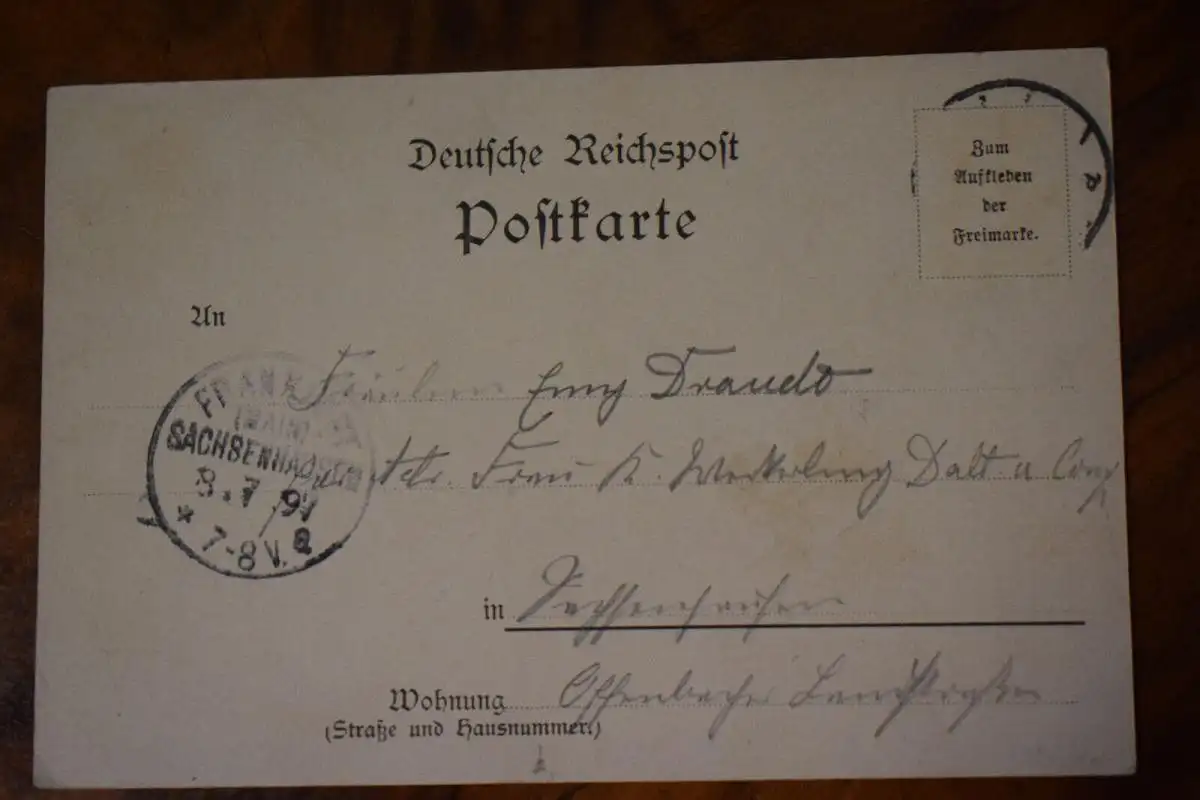 Deutsche Reichspost
Postkarte
Zum
Aufkleben
der
Freimarke.
An
Fräulein Emy Draudt
Frau K. Dalt u Comp
in Sachsenhausen
Wohnung Offenbacher Landstraße
(Straße und Hausnummer.)
FRANK
(MAIN)
SACHSENHAUSEN
8.7.97
* 7-8 V. a